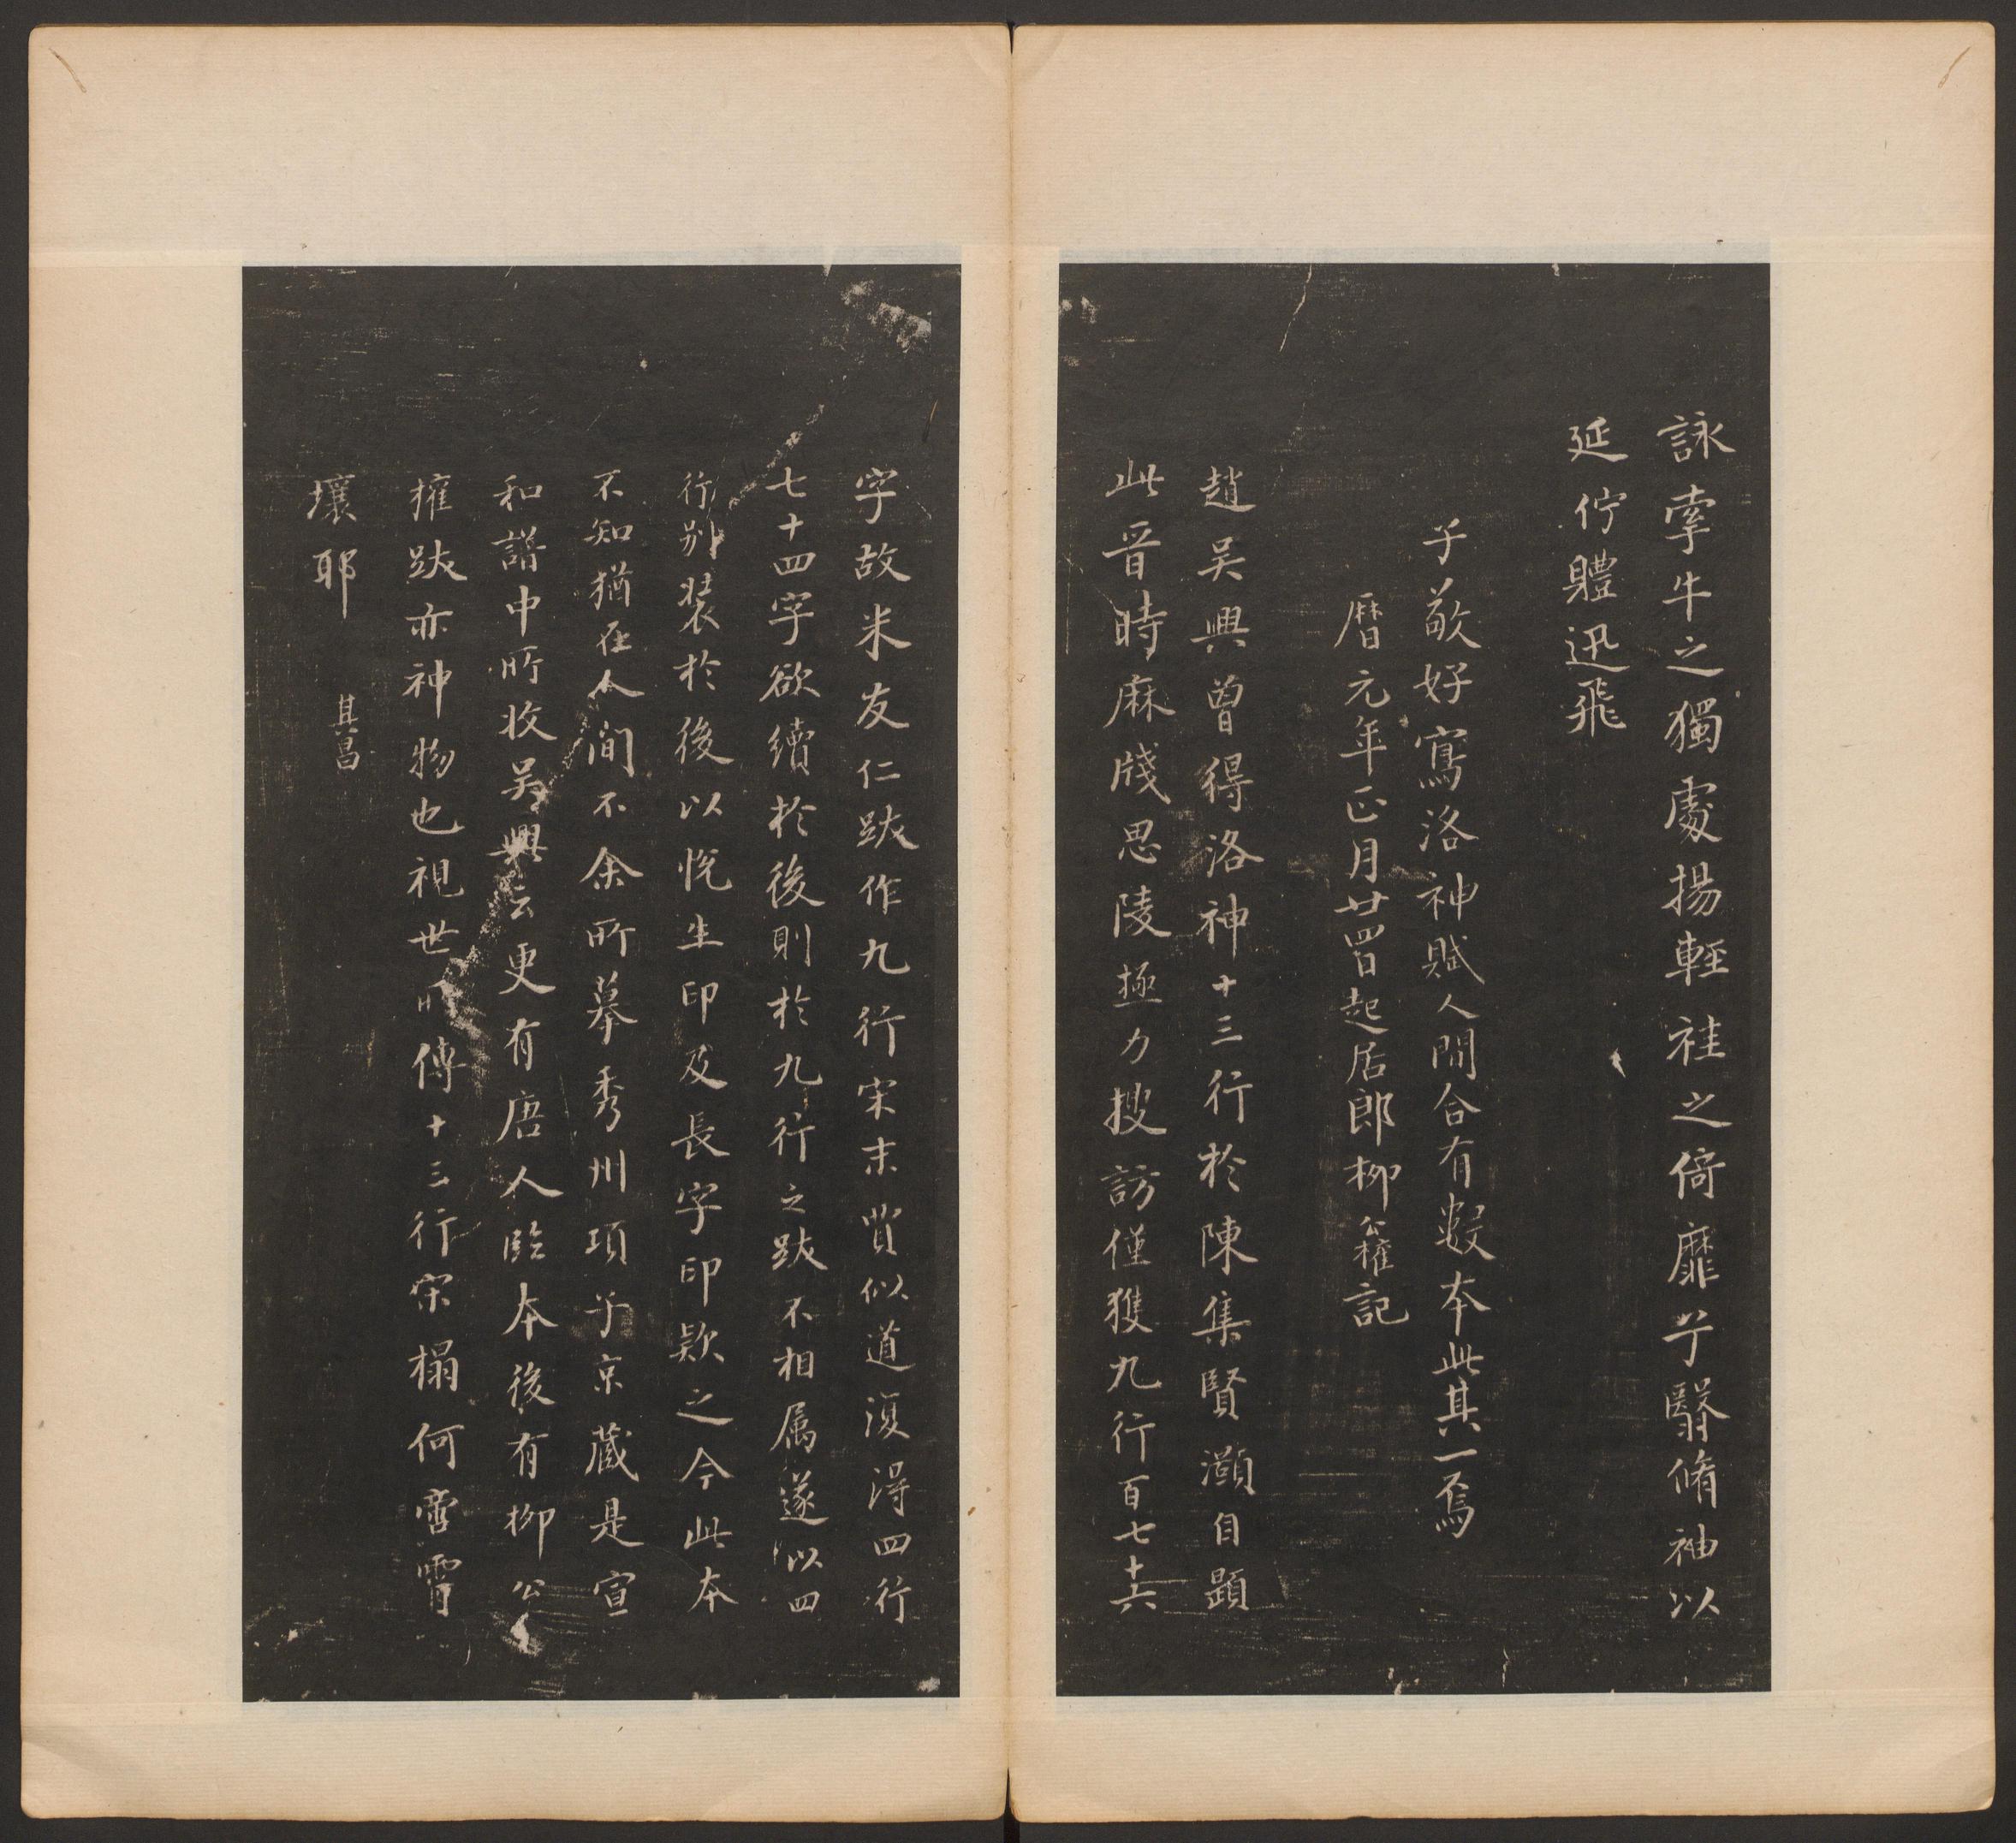 詠牽牛之獨處揚輕袿之倚靡兮翳脩袖以
延佇體迅飛
子敬好寫洛神賦人間合有數本此其一焉
曆元年正月廿四日起居郎柳公權記
趙吳興曾得洛神十三行於陳集賢灝自題
此晉時麻牋思陵極力搜訪僅獲九行百七十六
字故米友仁跋作九行宋末賈似道復得四行
七十四字欲續於後則於九行之跋不相属遂以四
行別裝於後以悅生印及長字印款之今此本
不知猶在人間不余所摹秀州項子京藏是宣
和譜中所收吳興云更有唐人臨本後有柳公
權跋亦神物也視世所傳十三行宋榻何啻霄
壤耶 其昌